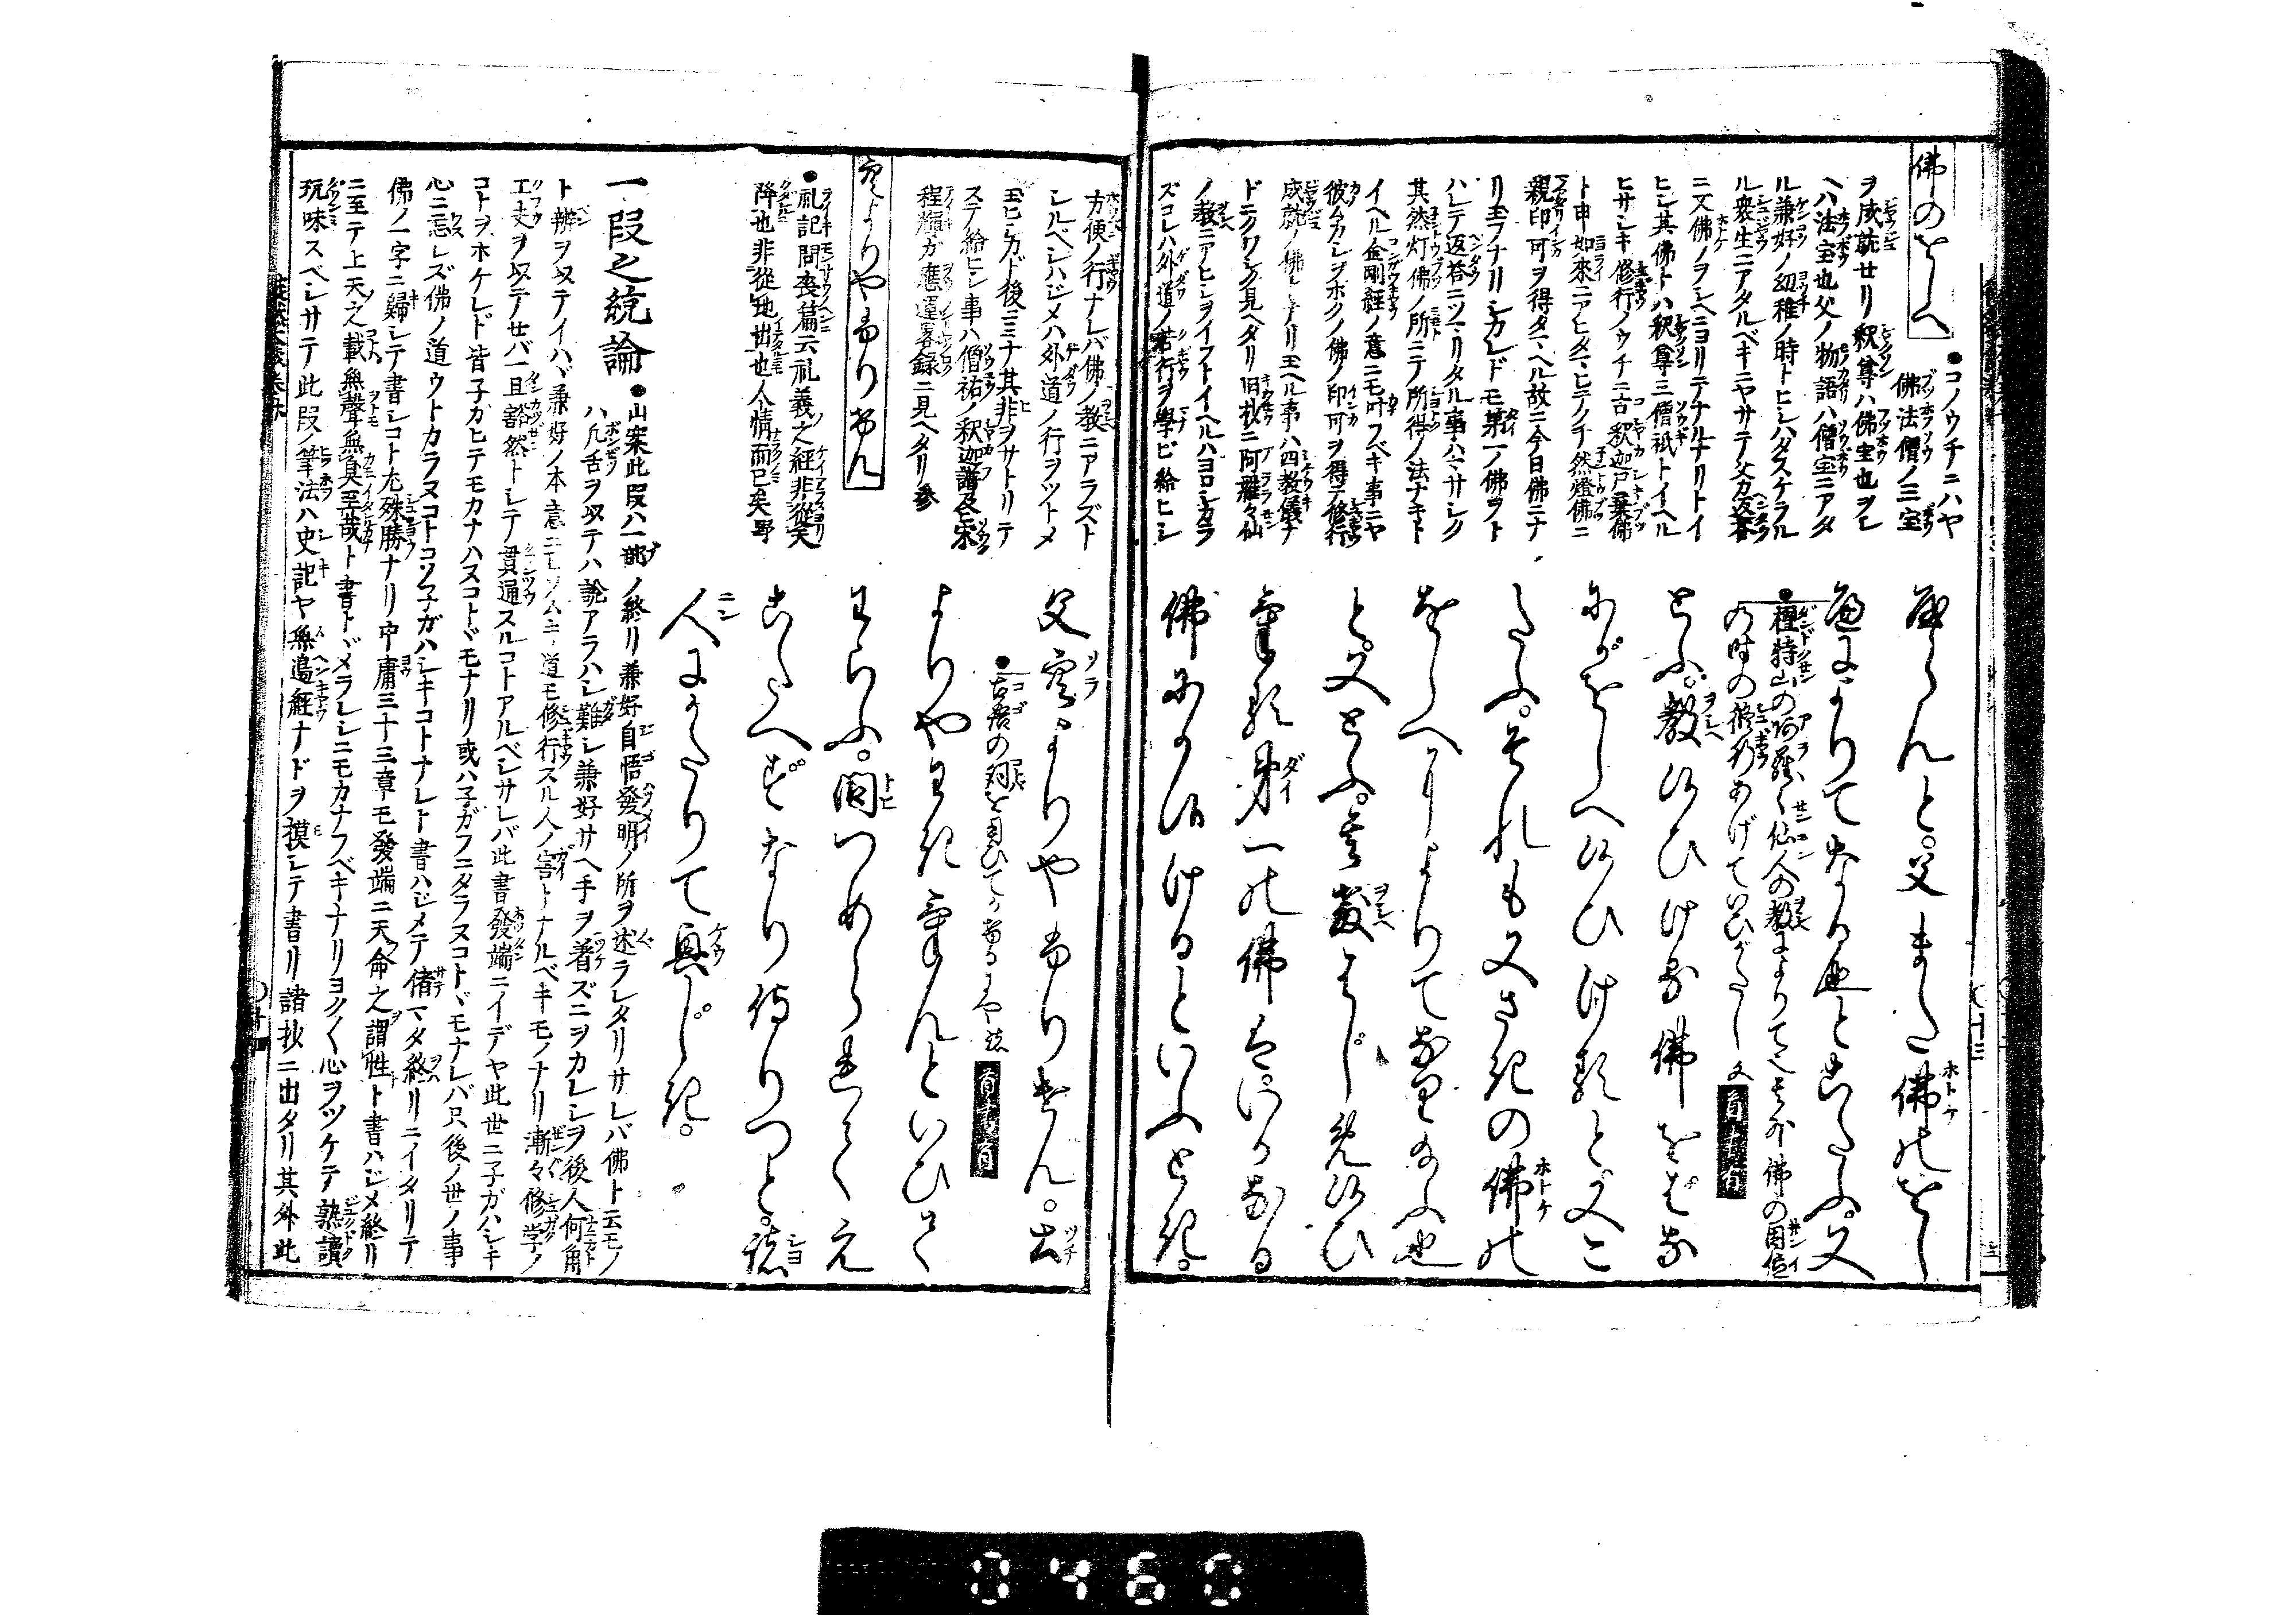 佛のをしへ
●コノウチニハヤ
佛法僧ノ三宝
ヲ成就せリ釈尊ハ佛宝也ヲシ
ヘハ法宝也父ノ物語ハ僧宝ニアタ
ル兼好ノ幼稚ノ時トヒシハタスケラル
ル衆生ニアタルベキニヤサテ父カ返答
ニ又佛ノヲシヘニヨリテナルナリトイ
ヒシ其佛トハ釈尊三僧祇トイヘル
ヒサシキ修行ノウチニ古釈迦尸棄佛
ト申如來ニアヒタマヒテノチ然燈佛ニ
親印可ヲ得タマヘル故ニ今日佛ニナ
リ玉フナリシカレドモ第一ノ佛ヲト
ハレテ返答ニツマリタル事ハマサシク
其然灯佛ノ所ニテ所得ノ法ナキト
イヘル金剛經ノ意ニモ叶フベキ事ニヤ
彼ムカシヲホクノ佛ノ印可ヲ得テ修行
成就ノ佛トナリ玉ヘル事ハ四教儀ナ
ドニクワシク見ヘタリ旧抄ニ阿羅々仙
ノ教ニアヒシヲイフトイヘルハヨロシカラ
ズコレハ外道ノ苦行ヲ學ビ給ヒシ
やらんと。父また佛のをし
へによりてなる也とこたふ。又
●檀特山の阿羅々仙人の教によりて也其外佛の因位
の時の修行あげていひがたし文
とふ。教給ひける佛をばな
にがをしへ給ひけると又こ
たふ。それも又さきの佛の
をしへによりてなり給ふ也
と。又とふ。其教はじめ給ひ
ける第一の佛はいかなる
佛にか侍けるといふとき。
方便ノ行ナレバ佛ノ教ニアラズト
シルベシハジメハ外道ノ行ヲツトメ
玉ヒシカド後ニ三ナ其非ヲサトリテ
ステ給ヒシ事ハ僧祐ノ釈迦譜及宋
程顥カ應運畧録ニ見ヘタリ参
空よりやふりけん
●礼記問喪篇云礼義之經非從天
降也非從地出也人情而已矣野
父空よりやふりけん。土
●古老の詞を用ひてか書るにや
よりやわきけんといひて
わらふ。問つめられてえ
こたへずなり侍りつと。諸
人にかたりて興じき。
一段之統論
●山案此段ハ一部ノ終リ兼好自悟發明ノ所ヲ述ラレタリサレバ佛ト云モノ
ハ凡舌ヲ以テハ説アラハシ難シ兼好サヘ手ヲ着ズニヲカレシヲ後人何角
ト辨ヲ以テイハヾ兼好ノ本意ニモソムキ道モ修行スル人ノ害トナルベキモノナリ漸々修学ノ
工夫ヲ以テセバ一旦豁然トシテ貫通スルコトアルベシサレバ此書發端ニイデヤ此世ニ子ガハシキ
コトヲホケレド皆子ガヒテモカナハヌコトヾモナリ或ハ子ガフニタラヌコトヾモナレバ只後ノ世ノ事
心ニ忘レズ佛ノ道ウトカラヌコトコソ子ガハシキコトナレト書ハジメテ偖マタ終リニイタリテ
佛ノ一字ニ歸シテ書シコト尤殊勝ナリ中庸三十三章モ發端ニ天命之謂性ト書ハジメ終リ
ニ至テ上天之載無聲無臭至哉ト書トヾメラレシニモカナフベキナリヨク〱心ヲツケテ熟讀
玩味スベシサテ此段ノ筆法ハ史記ヤ無逸經ナドヲ摸シテ書リ諸抄ニ出タリ其外此
0460